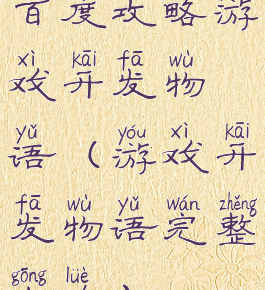 百度攻略游
xì kāi fā wù
戏开发物
yǔ yóu xì kāi
语(游戏开
fā wù yǔ wán zhěng
发物语完整
gōng lüè